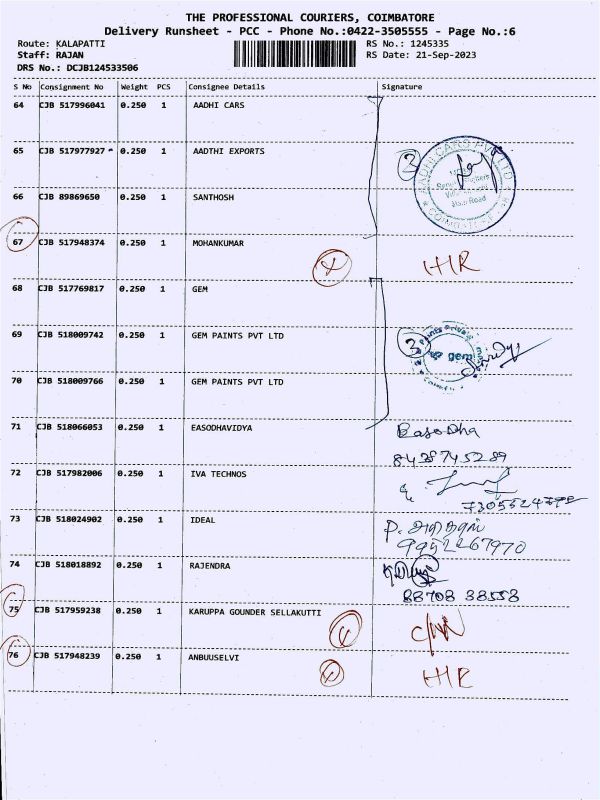 THE PROFESSIONAL COURIERS, COIMBATORE
Delivery Runsheet - PCC - Phone No.:0422-3505555 - Page No.:6
Route: KALAPATTI RS No.: 1245335
Staff: RAJAN RS Date: 21-Sep-2023
DRS No.: DCJB124533506
S No Consignment No Weight PCS Consignee Details Signature
64 CJB 517996041 0.250 1 AADHI CARS
65 CJB 517977927 0.250 1 AADTHI EXPORTS
3
AADHI CARS PVT LTD
Road
66 CJB 89869650 0.250 1 SANTHOSH
67 CJB 517948374 0.250 1 MOHANKUMAR
68 CJB 517769817 0.250 1 GEM
69 CJB 518009742 0.250 1 GEM PAINTS PVT LTD
3
gem
70 CJB 518009766 0.250 1 GEM PAINTS PVT LTD
71 CJB 518066053 0.250 1 EASODHAVIDYA
EasoDha
8438745289
72 CJB 517982006 0.250 1 IVA TECHNOS
73 CJB 518024902 0.250 1 IDEAL
9952267970
74 CJB 518018892 0.250 1 RAJENDRA
88708 38558
75 CJB 517959238 0.250 1 KARUPPA GOUNDER SELLAKUTTI
76 CJB 517948239 0.250 1 ANBUUSELVI